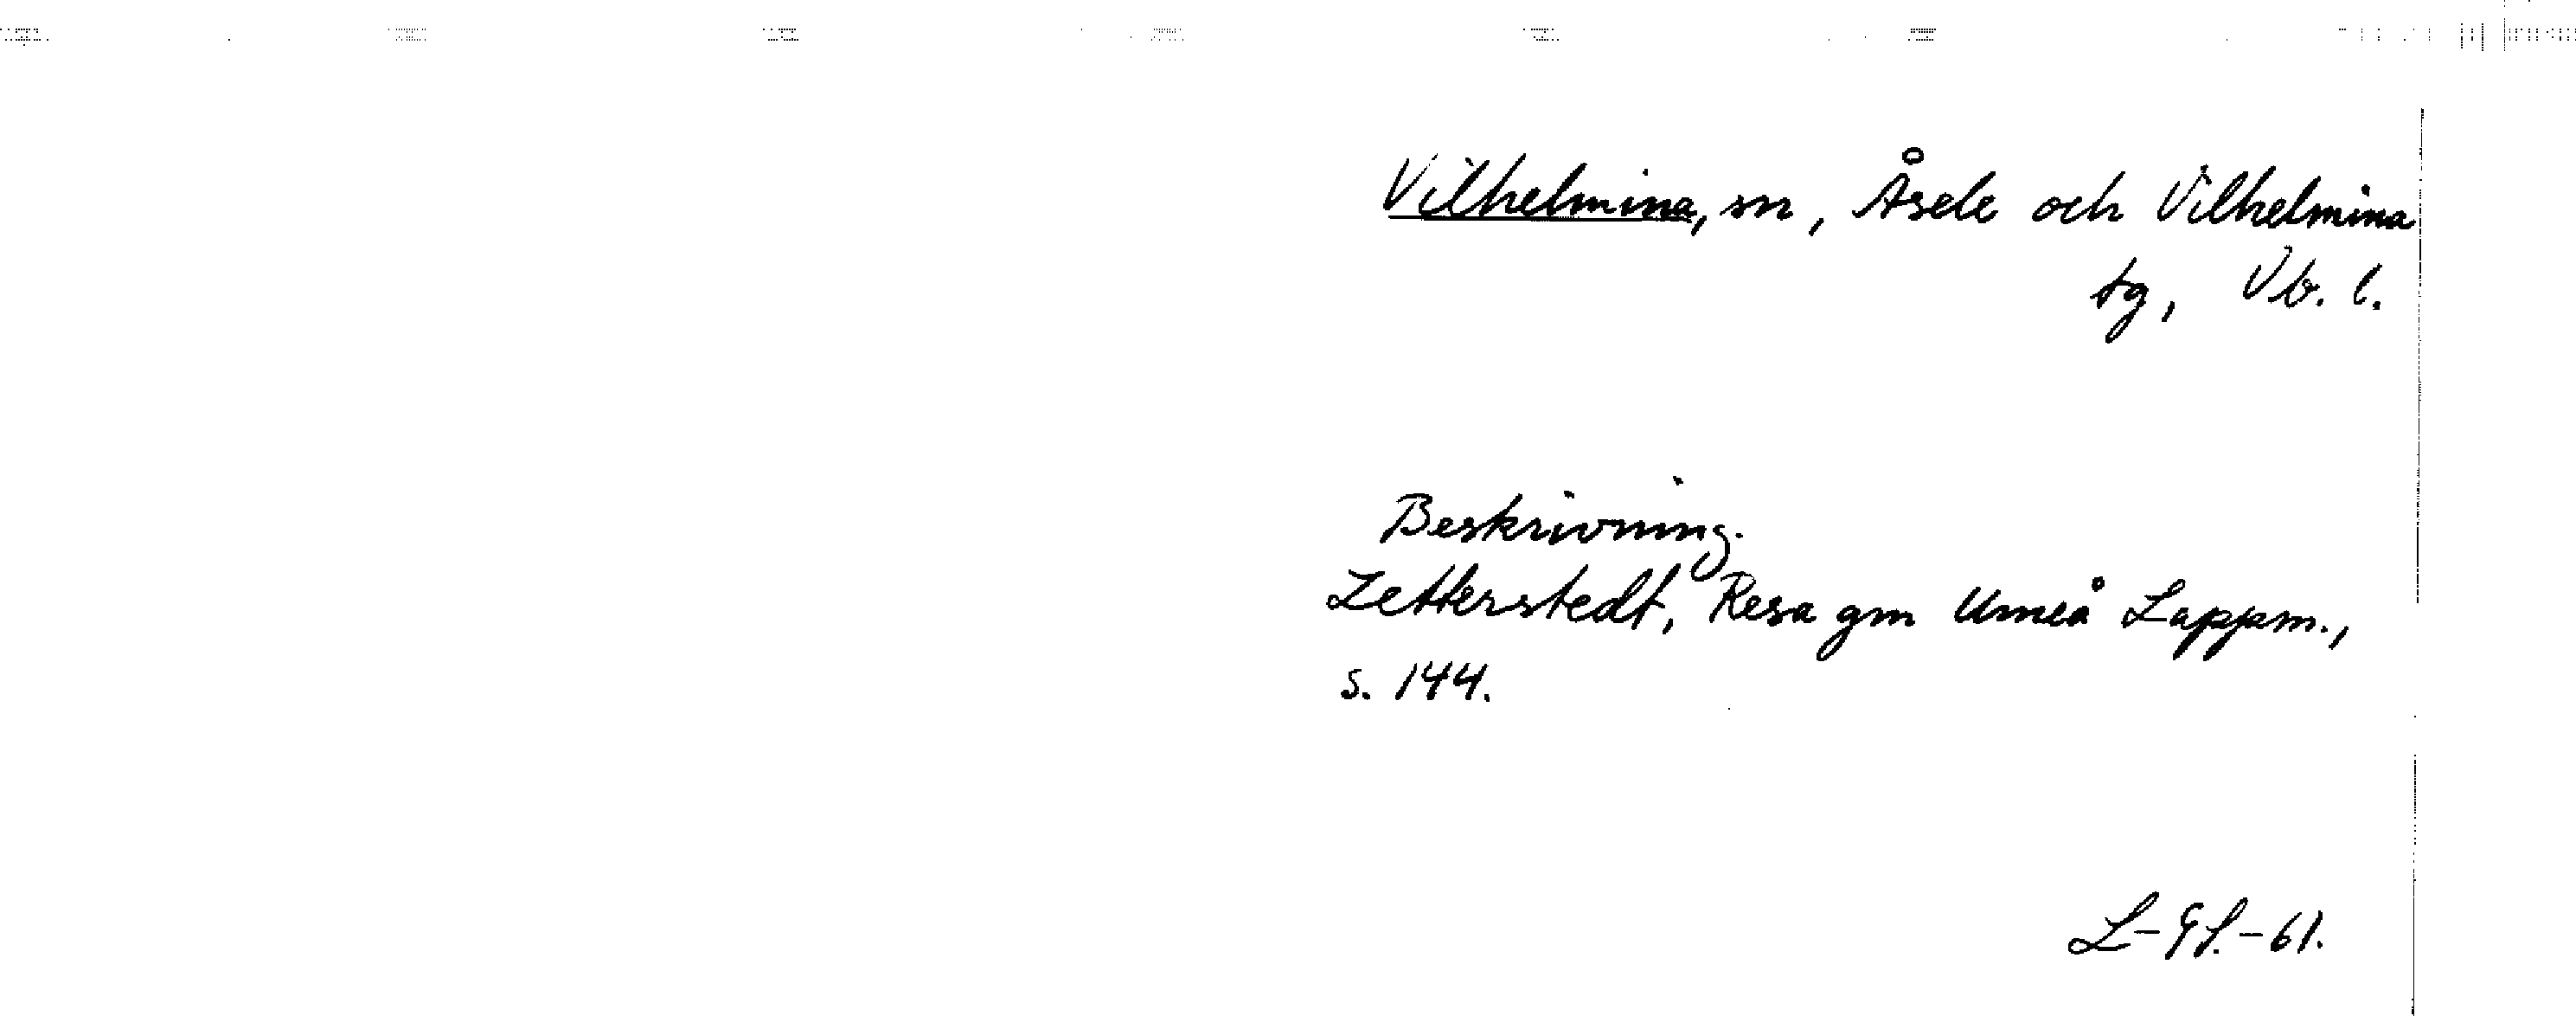 Vilhelmina, sn, Åsele och Vilhelmina
tg, Vb. l.
Beskrivning.
Zetterstedt, Resa gm Umeå Lappm.,
s. 144.